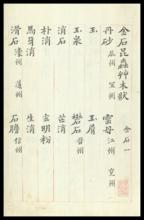 金石昆蟲艸木狀
金石一
丹砂
雲母 江州 兗州
玉
玉屑
玉泉
礬石 晉州
消石
芒消
朴消
玄明粉
馬牙消
生消
滑石 濠州 道州
石膽 信州